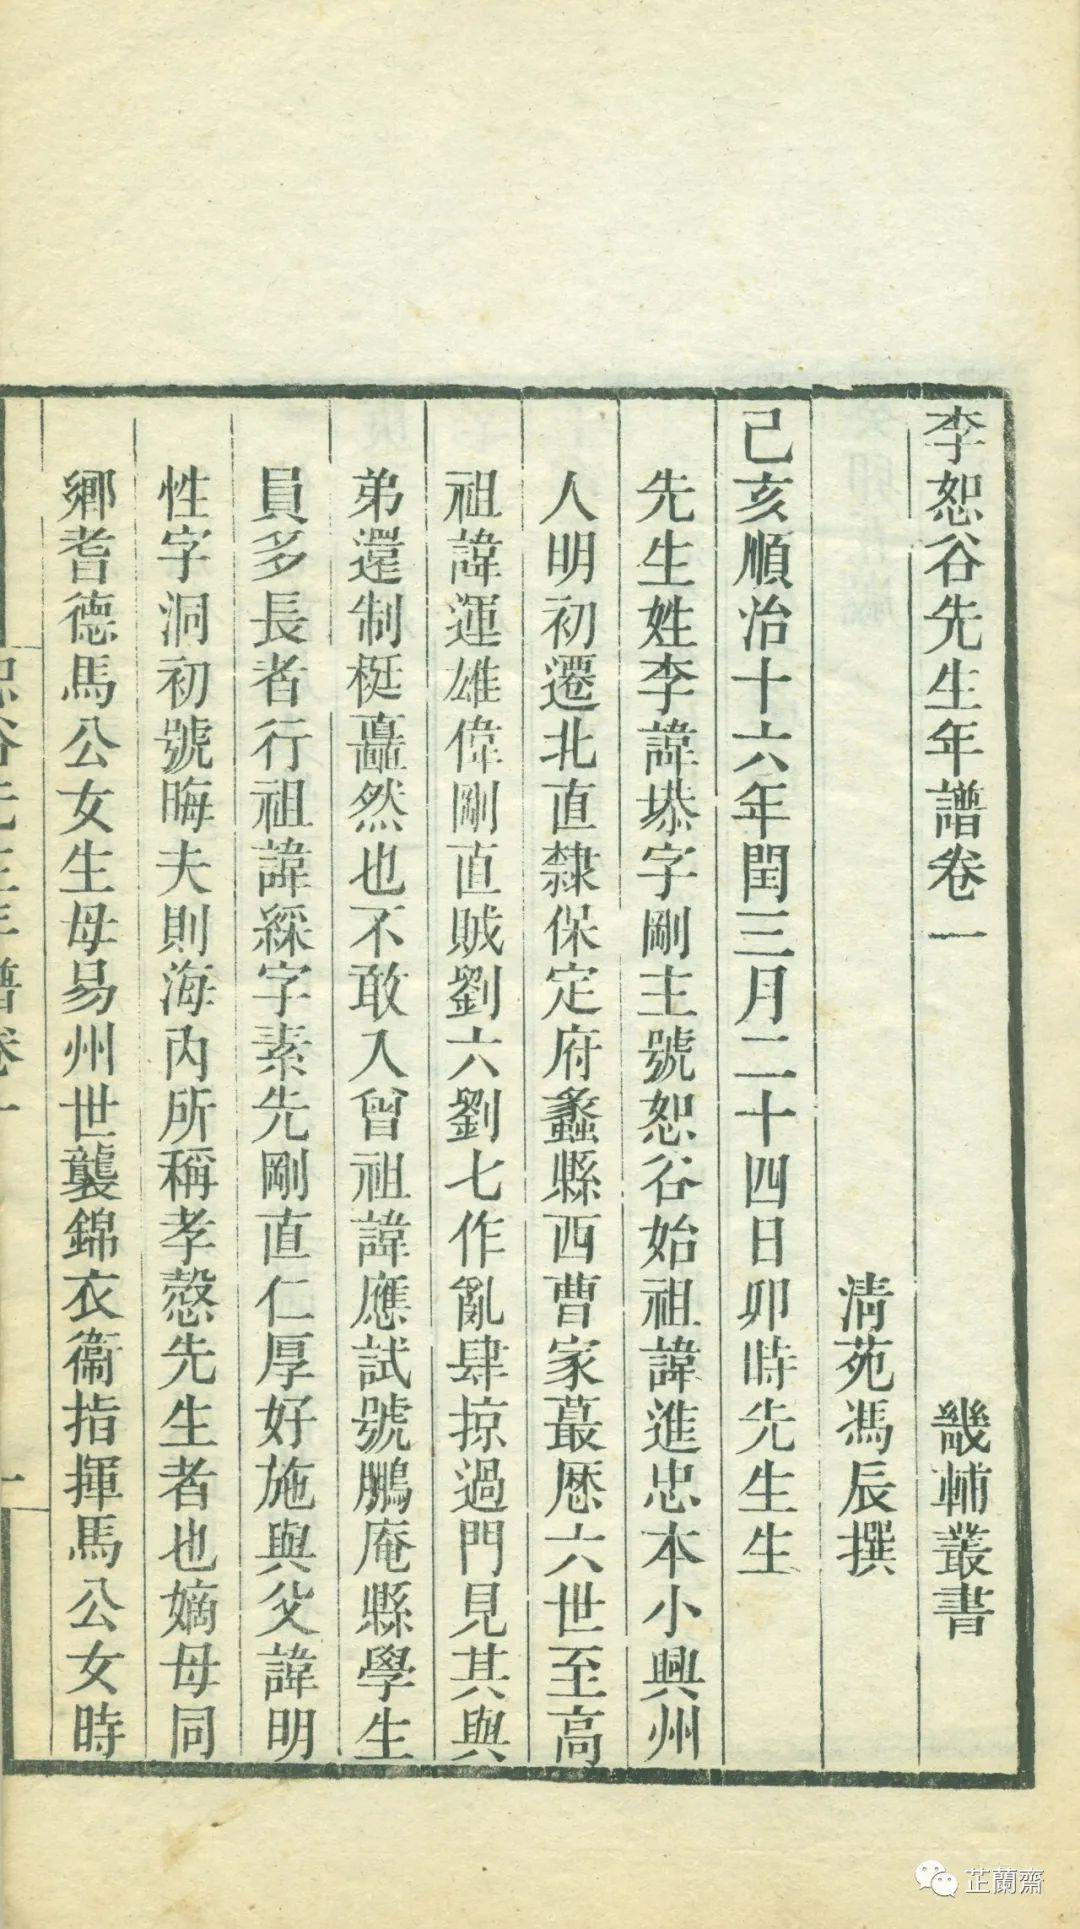 李恕谷先生年譜卷一 畿輔叢書
清苑馮辰撰
己亥順治十六年閏三月二十四日卯時先生生
先生姓李諱塨字剛主號恕谷始祖諱進忠本小興州
人明初遷北直隸保定府蠡縣西曹家蕞歷六世至高
祖諱運雄偉剛直賊劉六劉七作亂肆掠過門見其與
弟還制梃矗然也不敢入曾祖諱應試號鵬庵縣學生
員多長者行祖諱綵字素先剛直仁厚好施與父諱明
性字洞初號晦夫則海內所稱孝慤先生者也嫡母同
鄉耆德馬公女生母易州世襲錦衣衞指揮馬公女時
恕谷先生年譜卷一
一
芷蘭齋